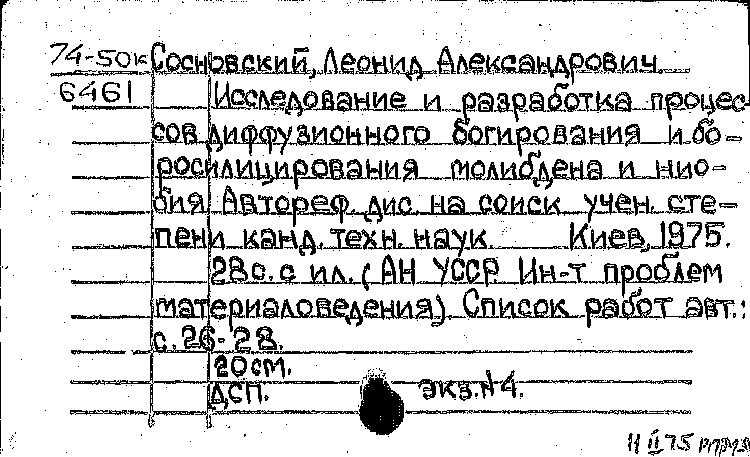 74-50к Сосновский, Леонид Александрович.
6461 Исследование и разработка процес-
сов диффузионного богирования и бо-
росилицирования молибдена и нио-
бия. Автореф. дис. на соиск учен. сте-
пени канд. техн. наук. Киев, 1975.
28с. с ил. (АН УССР. Ин-т проблем
материаловедения). Список работ авт.:
с. 26-28.
20см.
ДСП. экз. №4.
11 II 75